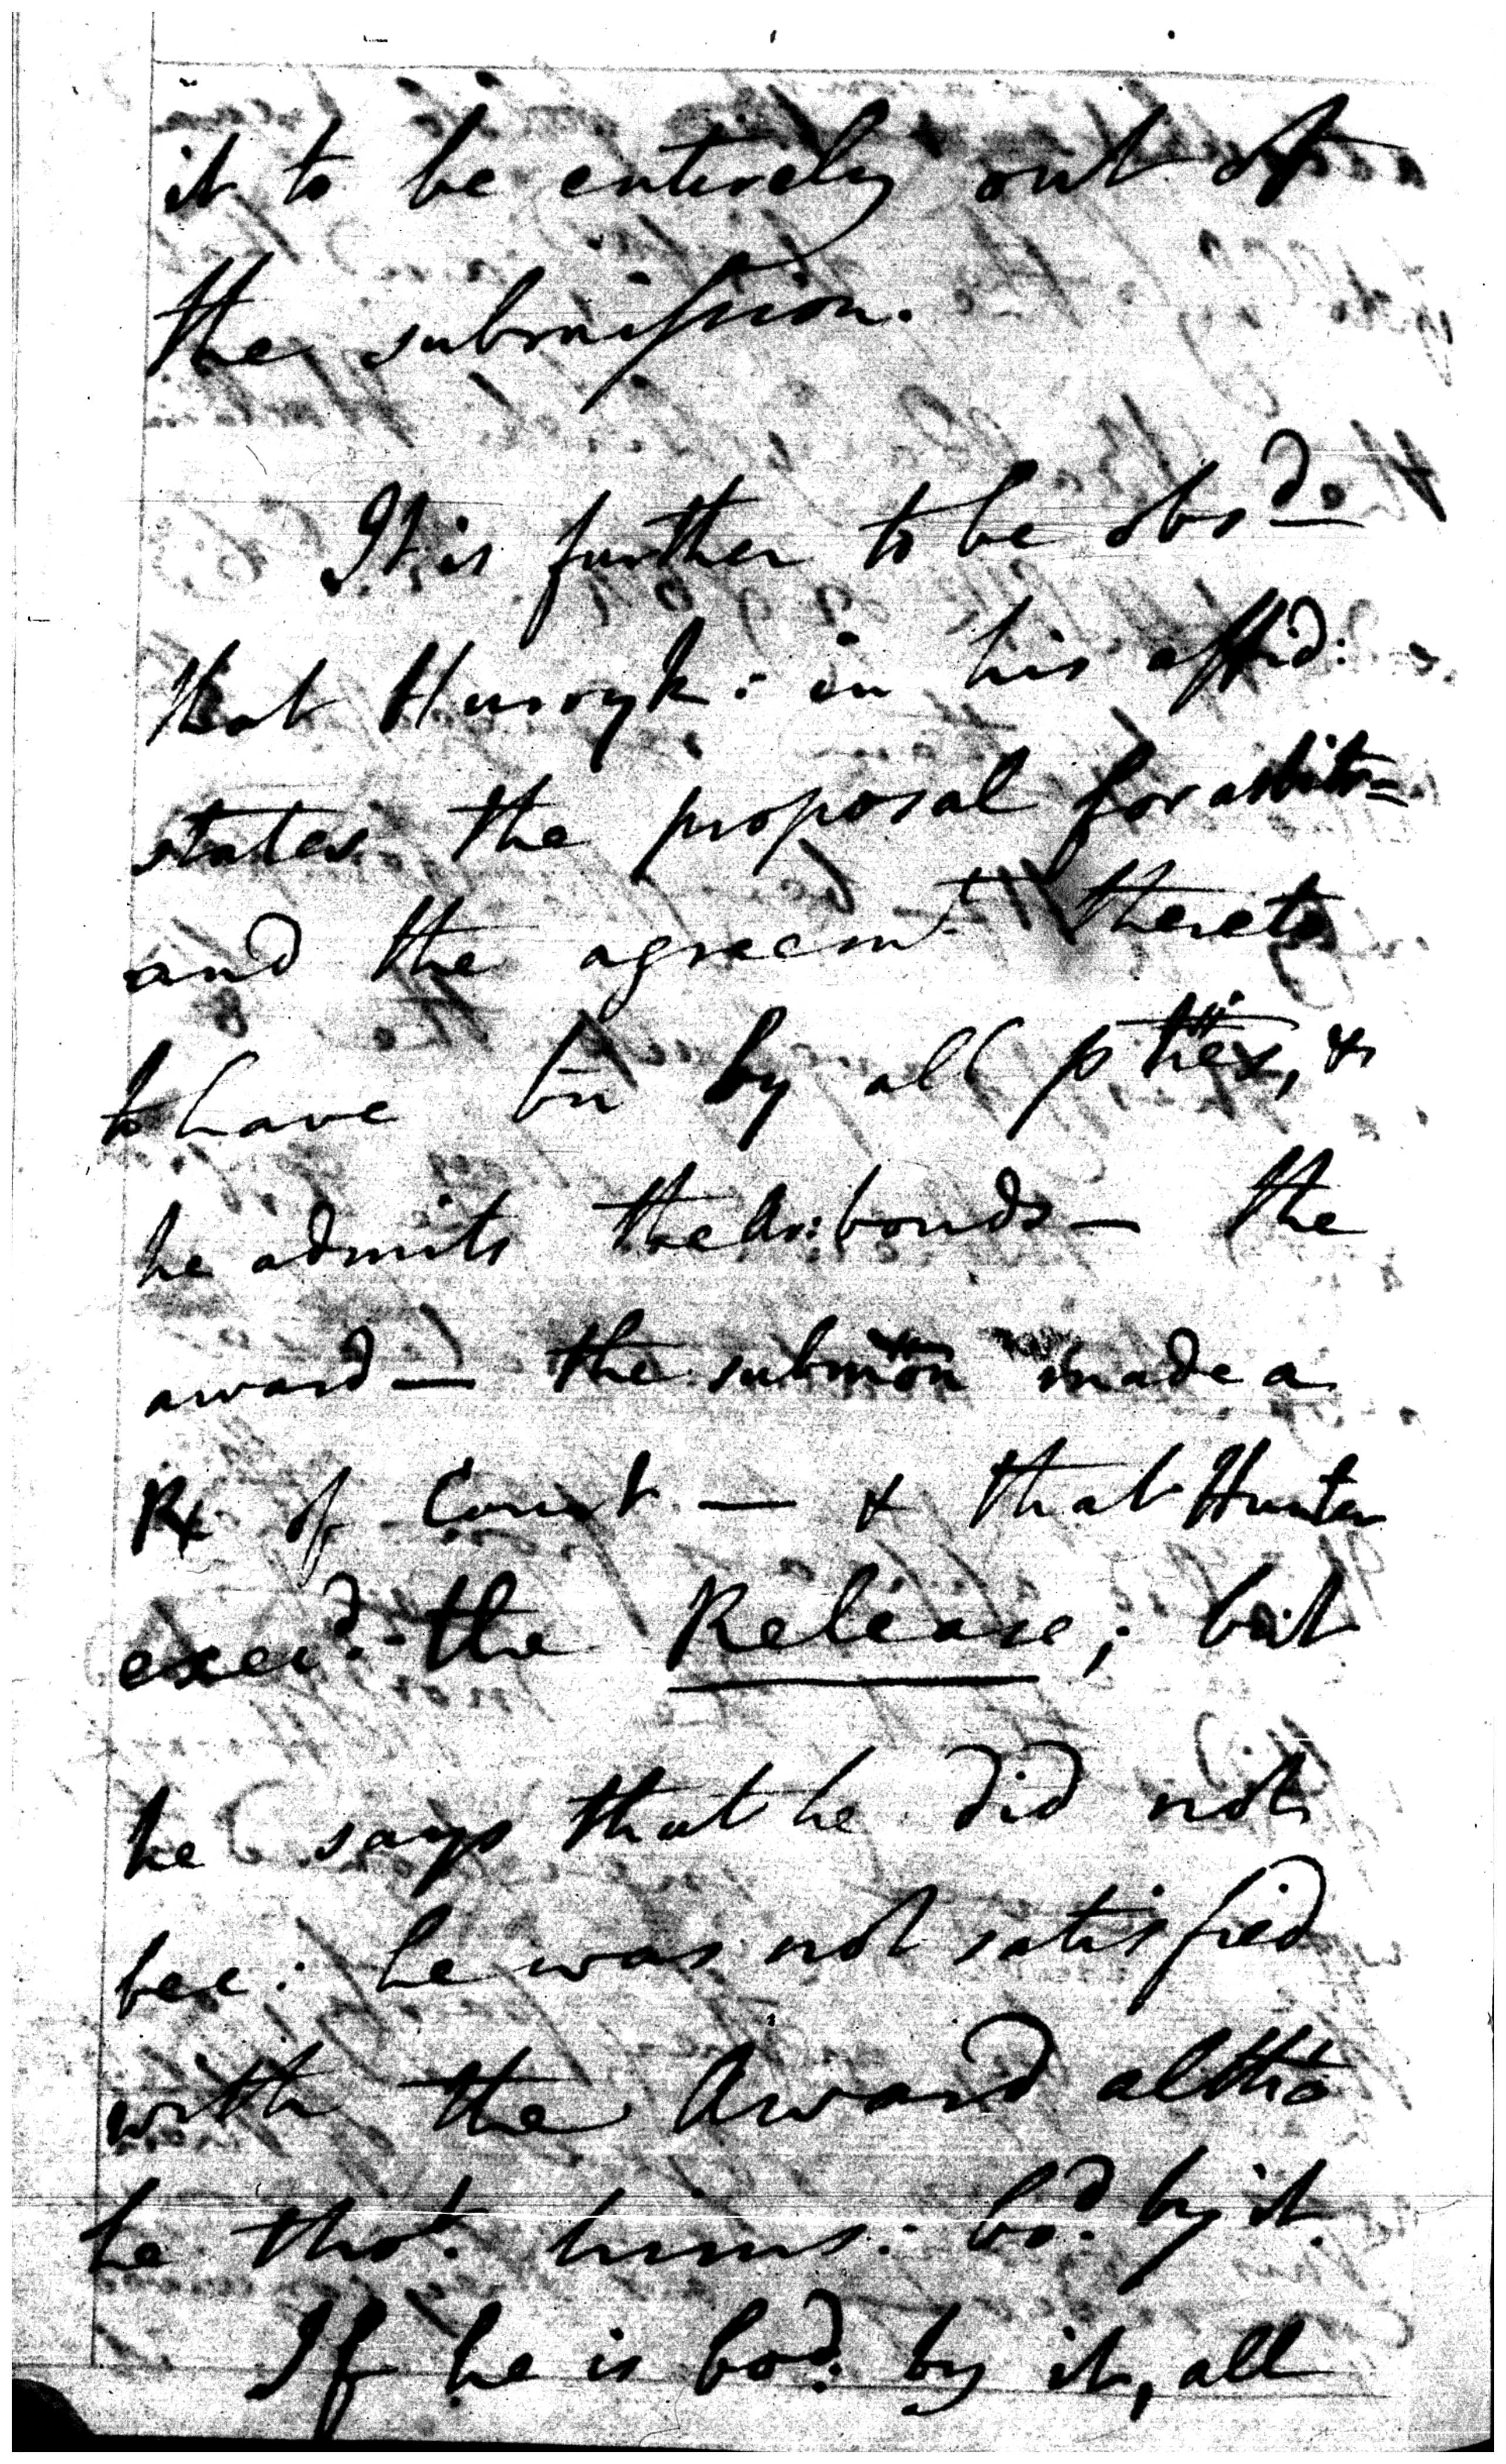 it to be entirely out of
the submission.
It is further to be obsd.
that Hursyk: in his affid:
states the proposal for arbitr=
and the agreemt. thereto
to have bn by all pties, &
he admits the Ar: bonds — the
award — the submon made a
Rx of Court — & that Hunter
execd. the Release; but
he says that he did not
bec: he was not satisfied
with the Award altho
he thot. hims: bod. by it.
If he is bod. by it, all